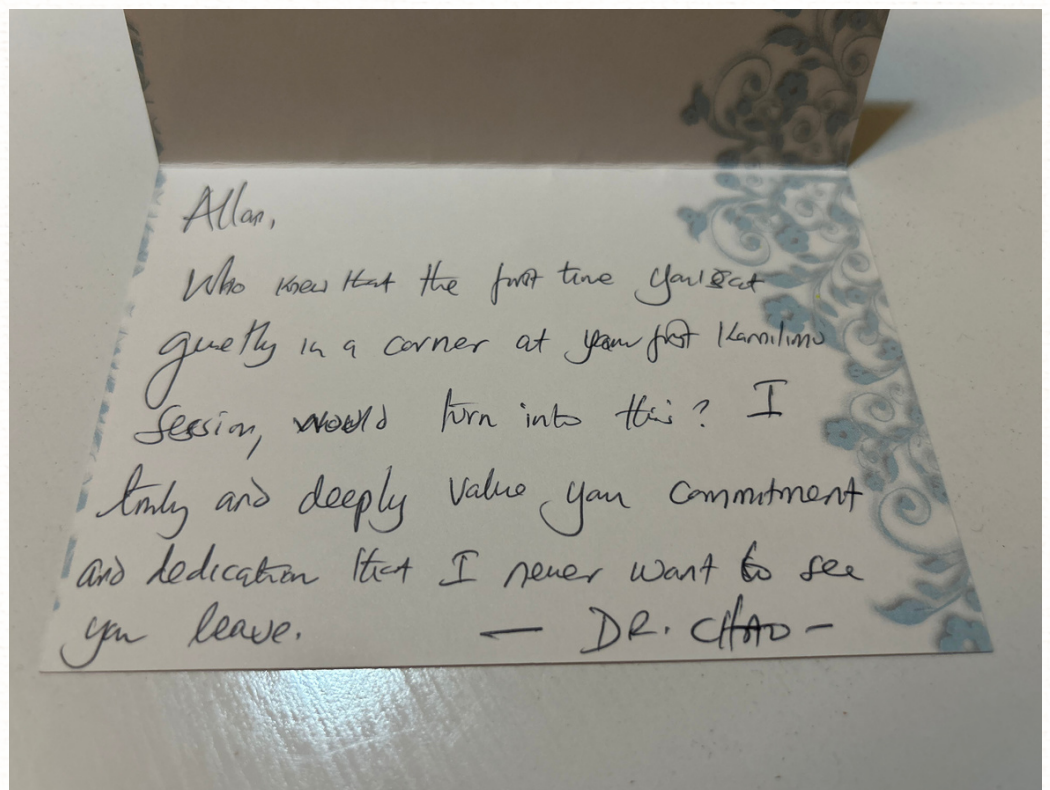 Allan,
Who knew that the first time you sat
quietly in a corner at your first Kamilimu
session, would turn into this? I
truly and deeply value your commitment
and dedication that I never want to see
you leave. — DR. CHAO —